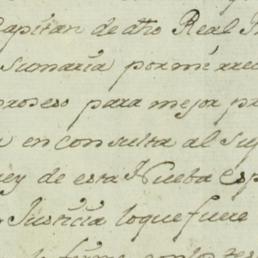 Capitan de dho Real
Sumaria por mi
proseso para mejor
en consulta al
rey de esta Nueba Esp
Justicia loque fuere